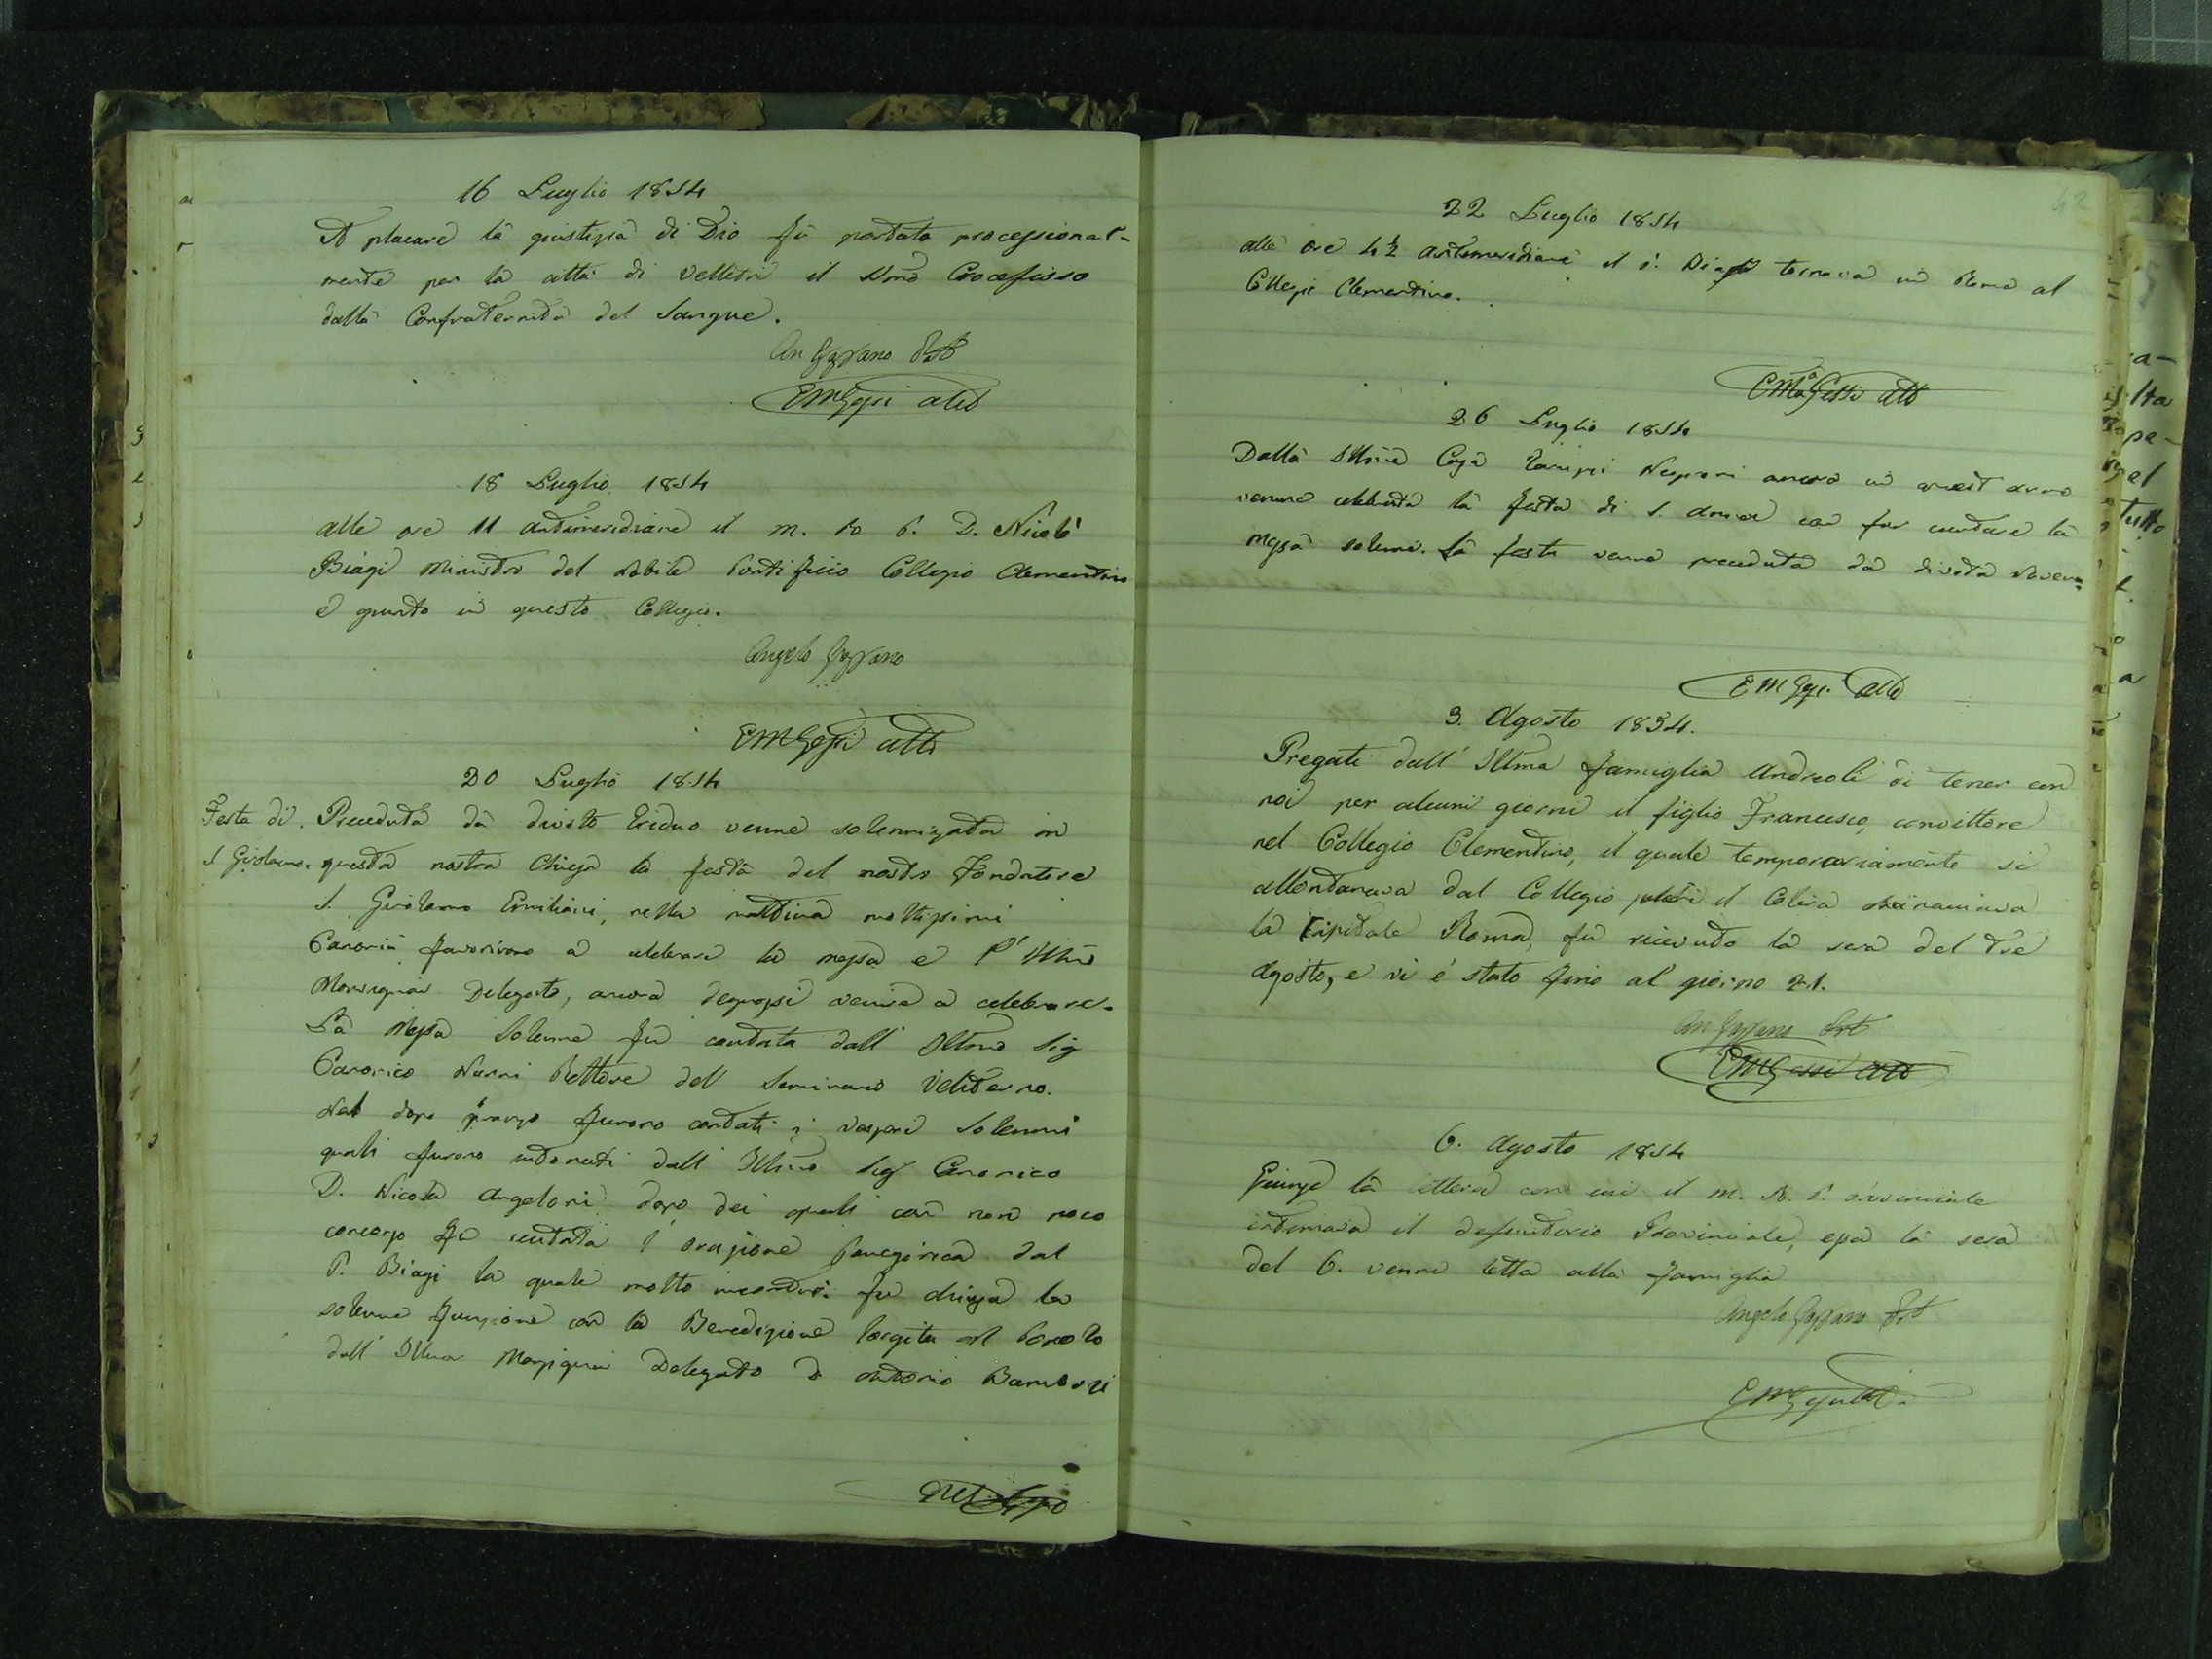 16 Luglio 1854
A placare la giustizia di Dio fu portato processional-
mente per la città di Velletri il SSmo Crocefisso
dalla Confraternita del Sangue.
An Gazzano
EMGessi atto
18 Luglio 1854
alle ore 11 antimeridiane il m. Ro P. D. Nicolò
Biagi Ministro del Nobile Pontificio Collegio Clementino
è giunto in questo Collegio.
Angelo Gazzano
EMGessi atto
20 Luglio 1854
Festa di
S Girolamo.
Preceduta da divoto triduo venne solennizzata in
questa nostra Chiesa la festa del nostro Fondatore
S. Girolamo Emiliani, nella mattina moltissimi
Canonici favorirono a celebrare la messa e l'Illmo
Monsignor Delegato, ancora degnossi venire a celebrare.
La Messa Solenne fu cantata dall' Illmo Sig
Canonico Nanni Rettore del Seminario Veliterno.
Nel dopo pranzo furono cantati i vesperi Solenni
quali furono intonati dall' Illmo Sig Canonico
D. Nicola Angeloni dopo dei quali con non poco
concorso fu recitata l'orazione Panegirica dal
P. Biagi la quale molto incontrò. fu chiusa la
solenne funzione con la Benedizione largita al Popolo
dall' Illmo Monsignor Delegato D Antonio
42
22 Luglio 1854
alle ore 4 1/2 antimeridiane il P. Biagi tornava in Roma al
Collegio Clementino.
EMa Gessi atto
26 Luglio 1854
Dalla Illma Casa Negroni ancora in quest anno
venne celebrata la festa di S. Anna con far cantare la
Messa solenne. La festa venne preceduta da divota Novena
EMGessi atto
3. Agosto 1854.
Pregati dall' Illma famiglia Andreoli di tener con
noi per alcuni giorni il figlio Francesco, convittore
nel Collegio Clementino, il quale temporariamente si
allontanava dal Collegio il Colera
la Capitale Roma, fu ricevuto la sera del tre
Agosto, e vi è stato fino al giorno 21.
An Gazzano
EMGessi atto
6. Agosto 1854
Giunge la lettera con cui il m. R. P. Provinciale
intimava il definitorio Provinciale, essa la sera
del 6. venne letta alla famiglia
Angelo Gazzano
EMGessi